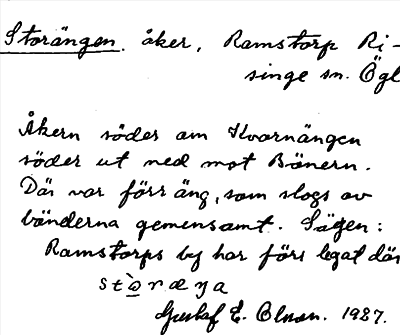 Storängen. åker, Ramstorp Ri-
singe sn. Ögl
Åkern söder om Kvarnängen
söder ut ned mot Bönern.
Där var förr äng, som slogs av
bönderna gemensamt. Sägen:
Ramstorps by har förr legat där
Gustaf E. Olson. 1927.